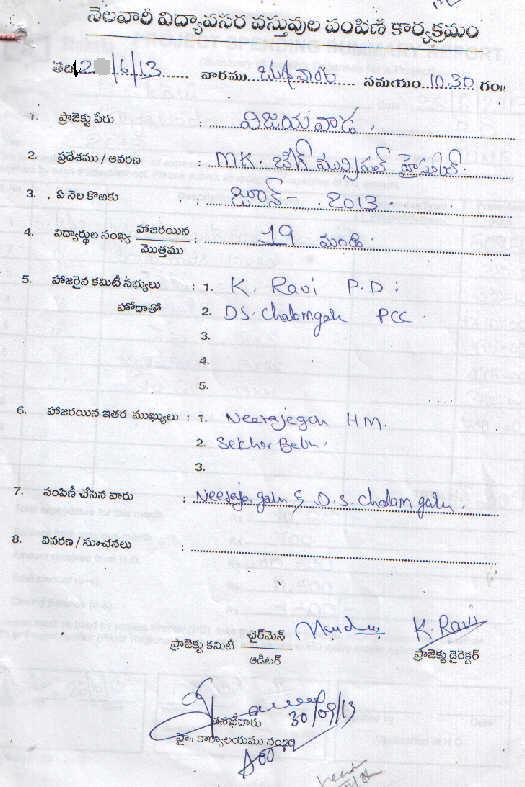 నెలవారి విద్యావసర వస్తువుల పంపిణీ కార్యక్రమం
తేది 2 /6/13 వారము బుధవారం సమయం 10.30 గం॥
1. ప్రాజెక్టు పేరు : విజయవాడ.
2. ప్రదేశము / ఆవరణ : MK. బేగ్ మున్సిపల్ హైస్కూల్.
3. ఏ నెల కొఱకు : జూన్ - 2013.
4. విద్యార్థుల సంఖ్య హాజరయిన / మొత్తము : 19 మంది.
5. హాజరైన కమిటీ సభ్యులు : 1. K. Ravi P.D :
హోదాతో 2. D.S. Chalamgaru PCC.
3.
4.
5.
6. హాజరయిన ఇతర ముఖ్యులు : 1. Neerajagaru HM.
2. Sekhar Babu.
3.
7. పంపిణీ చేసిన వారు : Neeraja garu & D.S. Chalam garu.
8. వివరణ / సూచనలు :
ప్రాజెక్టు కమిటీ చైర్మెన్ / ఆడిటర్ K. Ravi
ప్రాజెక్టు డైరెక్టర్
30/09/13
కార్యాలయము